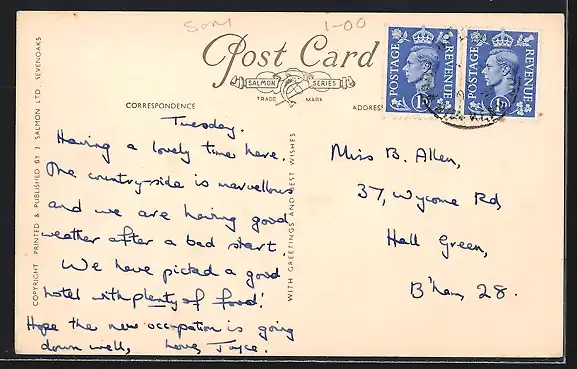 Som 1-00
Post Card
SALMON SERIES
TRADE MARK
CORRESPONDENCE
ADDRES
POSTAGE REVENUE 1D
POSTAGE REVENUE 1D
COPYRIGHT PRINTED & PUBLISHED BY J SALMON LTD SEVENOAKS
WITH GREETINGS AND BEST WISHES
Tuesday.
Having a lovely time here.
The country-side is marvellous
and we are having good
weather after a bad start.
We have picked a good
hotel with plenty of food!
Hope the new occupation is going
down well, Love, Joyce.
Miss B. Allen,
37, Wycome Rd,
Hall Green,
B'ham, 28.